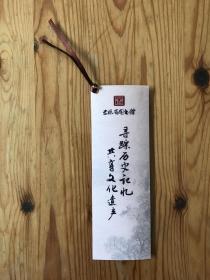 寻踪历史记忆
共享文化遗产